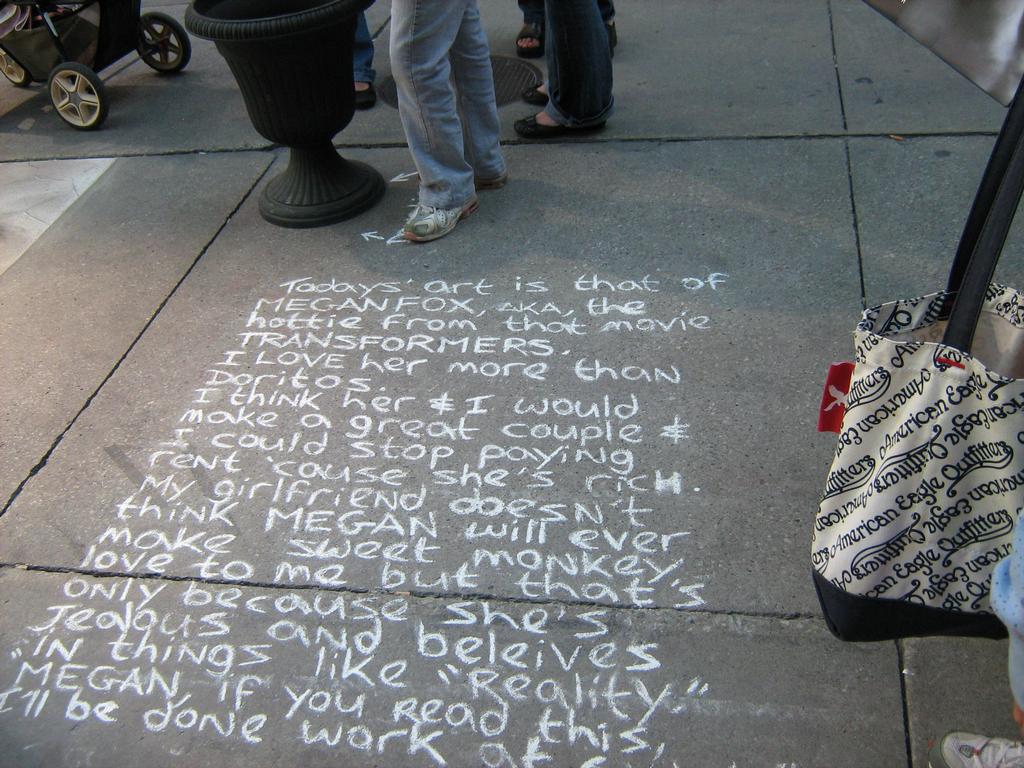 Todays' art is that of
MEGAN FOX, AKA, the
hottie from that movie
TRANSFORMERS.
I LOVE her more than
Doritos.
I think her & I would
make a great couple &
I could stop paying
rent 'cause she's rich.
My girlfriend doesn't
think MEGAN will ever
make sweet monkey
love to me but that's
only because she's
Jealous and beleives
"IN things like "Reality"
"MEGAN, if you read this,
I'll be done work at
American Eagle Outfitters
American Eagle Outfitters
American Eagle Outfitters